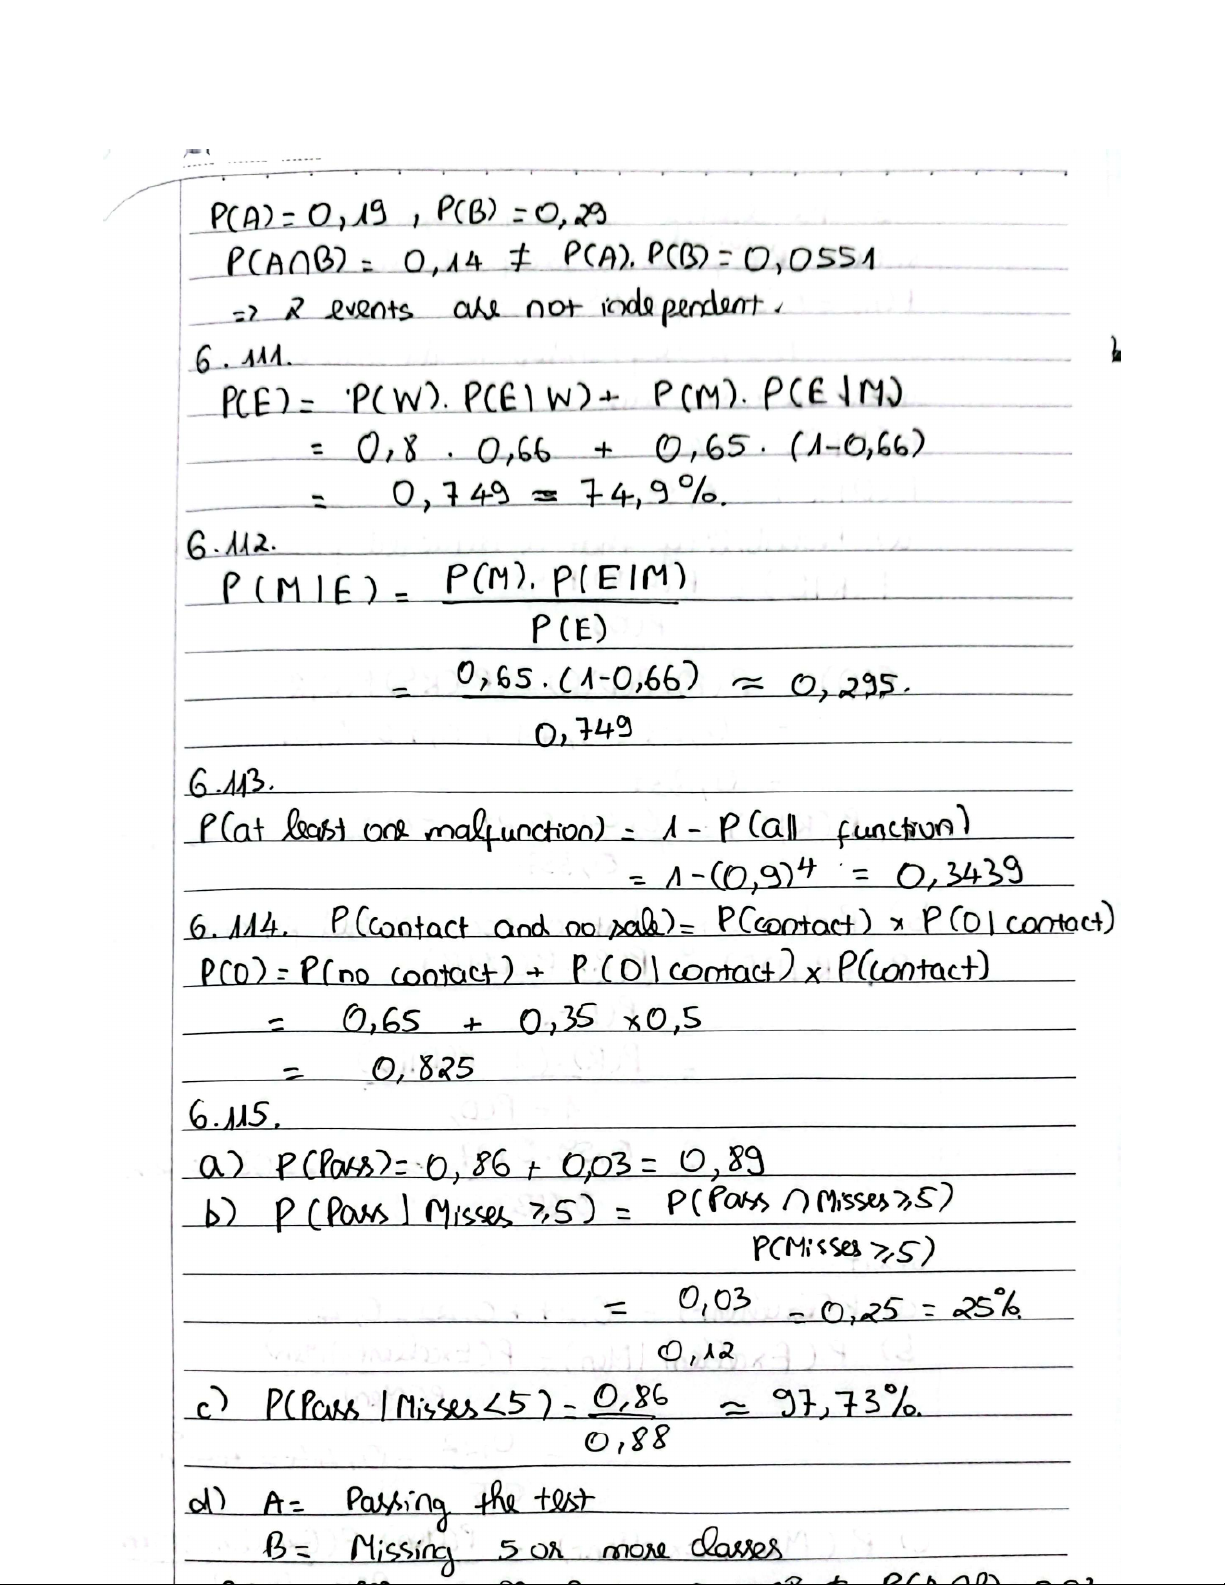 P(A) = 0,19 , P(B) = 0,29
P(A∩B) = 0,14 ≠ P(A). P(B) = 0,0551
=> 2 events are not independent.
6.111.
P(E) = P(W). P(E|W) + P(M). P(E|M)
= 0,8 . 0,66 + 0,65. (1-0,66)
= 0,749 = 74,9%.
6.112.
P(M|E) = P(M). P(E|M)
P(E)
= 0,65.(1-0,66) ≈ 0,295.
0,749
6.113.
P(at least one malfunction) = 1 - P(all function)
= 1-(0,9)^4 = 0,3439
6.114. P(contact and no sale) = P(contact) x P(0|contact)
P(0) = P(no contact) + P(0|contact) x P(contact)
= 0,65 + 0,35 x0,5
= 0,825
6.115.
a) P(Pass) = 0,86 + 0,03 = 0,89
b) P(Pass | Misses ≥5) = P(Pass ∩ Misses≥5)
P(Misses ≥5)
= 0,03 = 0,25 = 25%
0,12
c) P(Pass | Misses<5) = 0,86 ≈ 97,73%.
0,88
d) A= Passing the test
B= Missing 5 or more classes